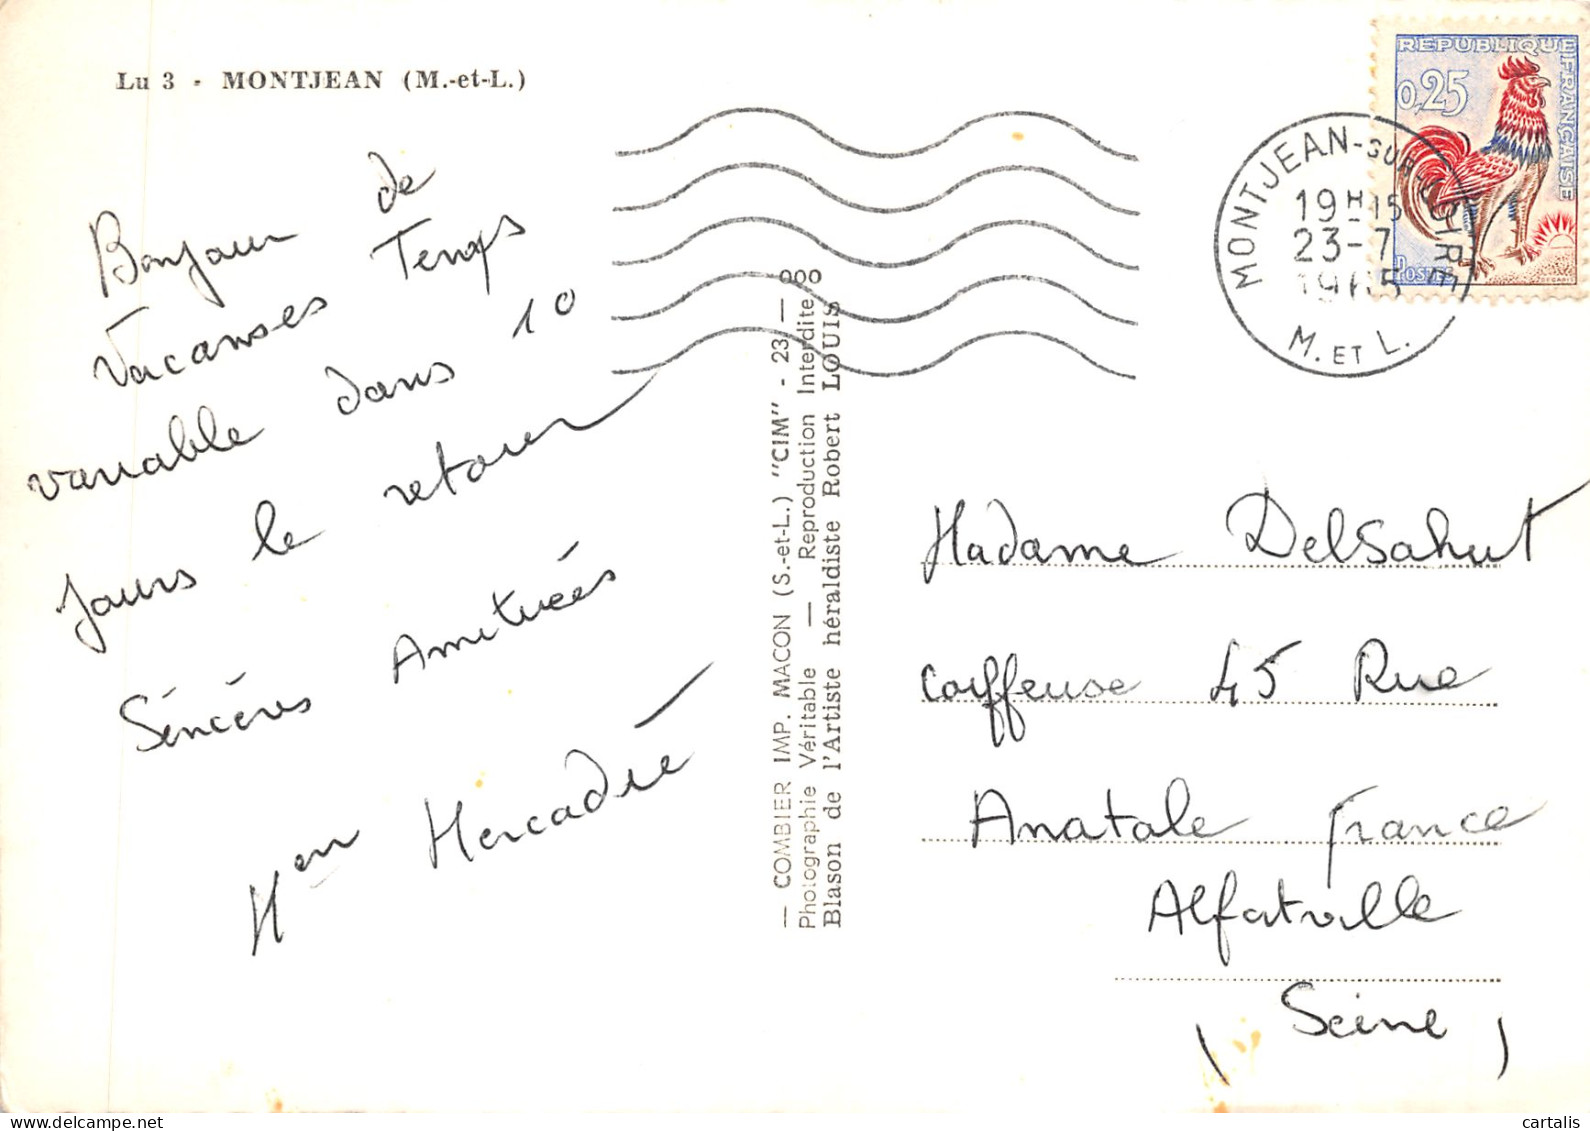 Lu 3 - MONTJEAN (M.-et-L.)
Bonjour de
Vacanses Temps
variable dans 10
jours le retour
Séncéres Amitiées
Mercadié
— COMBIER IMP. MACON (S.-et-L.) "CIM" - 23 — 000
Photographie Véritable — Reproduction Interdite
Blason de l'Artiste héraldiste Robert LOUIS
REPUBLIQUE FRANÇAISE
0,25
POSTES
MONTJEAN-SUR-LOIRE
19H15
23-7
1965
M. ET L.
Madame Delsahut
Coiffeuse 45 Rue
Anatole France
Alfortville
(Seine)
cartalis